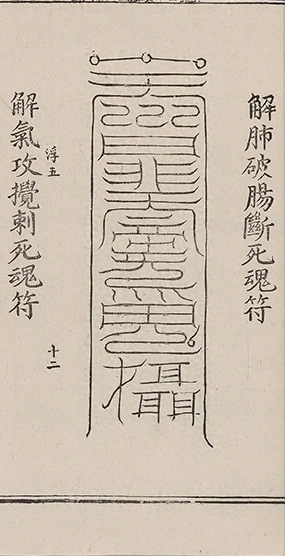 解肺破腸斷死魂符
攝
解氣攻攪刺死魂符
浮五
十二